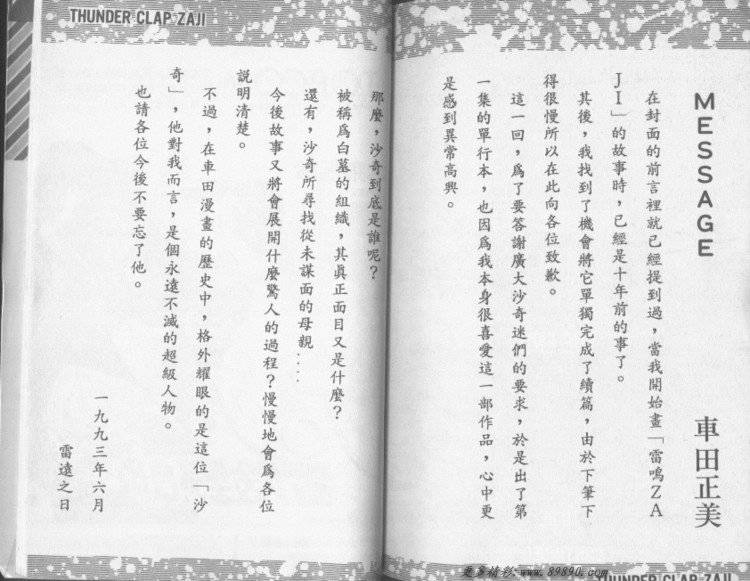 MESSAGE
車田正美
在封面的前言裡就已經提到過，當我開始畫「雷鳴ZA
JI」的故事時，已經是十年前的事了。
其後，我找到了機會將它單獨完成了續篇，由於下筆下
得很慢所以在此向各位致歉。
這一回，爲了要答謝廣大沙奇迷們的要求，於是出了第
一集的單行本，也因爲我本身很喜愛這一部作品，心中更
是感到異常高興。
THUNDER CLAP ZAJI
那麼，沙奇到底是誰呢？
被稱爲白墓的組織，其眞正面目又是什麼？
還有，沙奇所尋找從未謀面的母親‥‥
今後故事又將會展開什麼驚人的過程？慢慢地會爲各位
説明清楚。
不過，在車田漫畫的歷史中，格外耀眼的是這位「沙
奇」，他對我而言，是個永遠不滅的超級人物。
也請各位今後不要忘了他。
一九九三年六月
雷遠之日
THUNDER CLAP ZAJI
www.89890.com